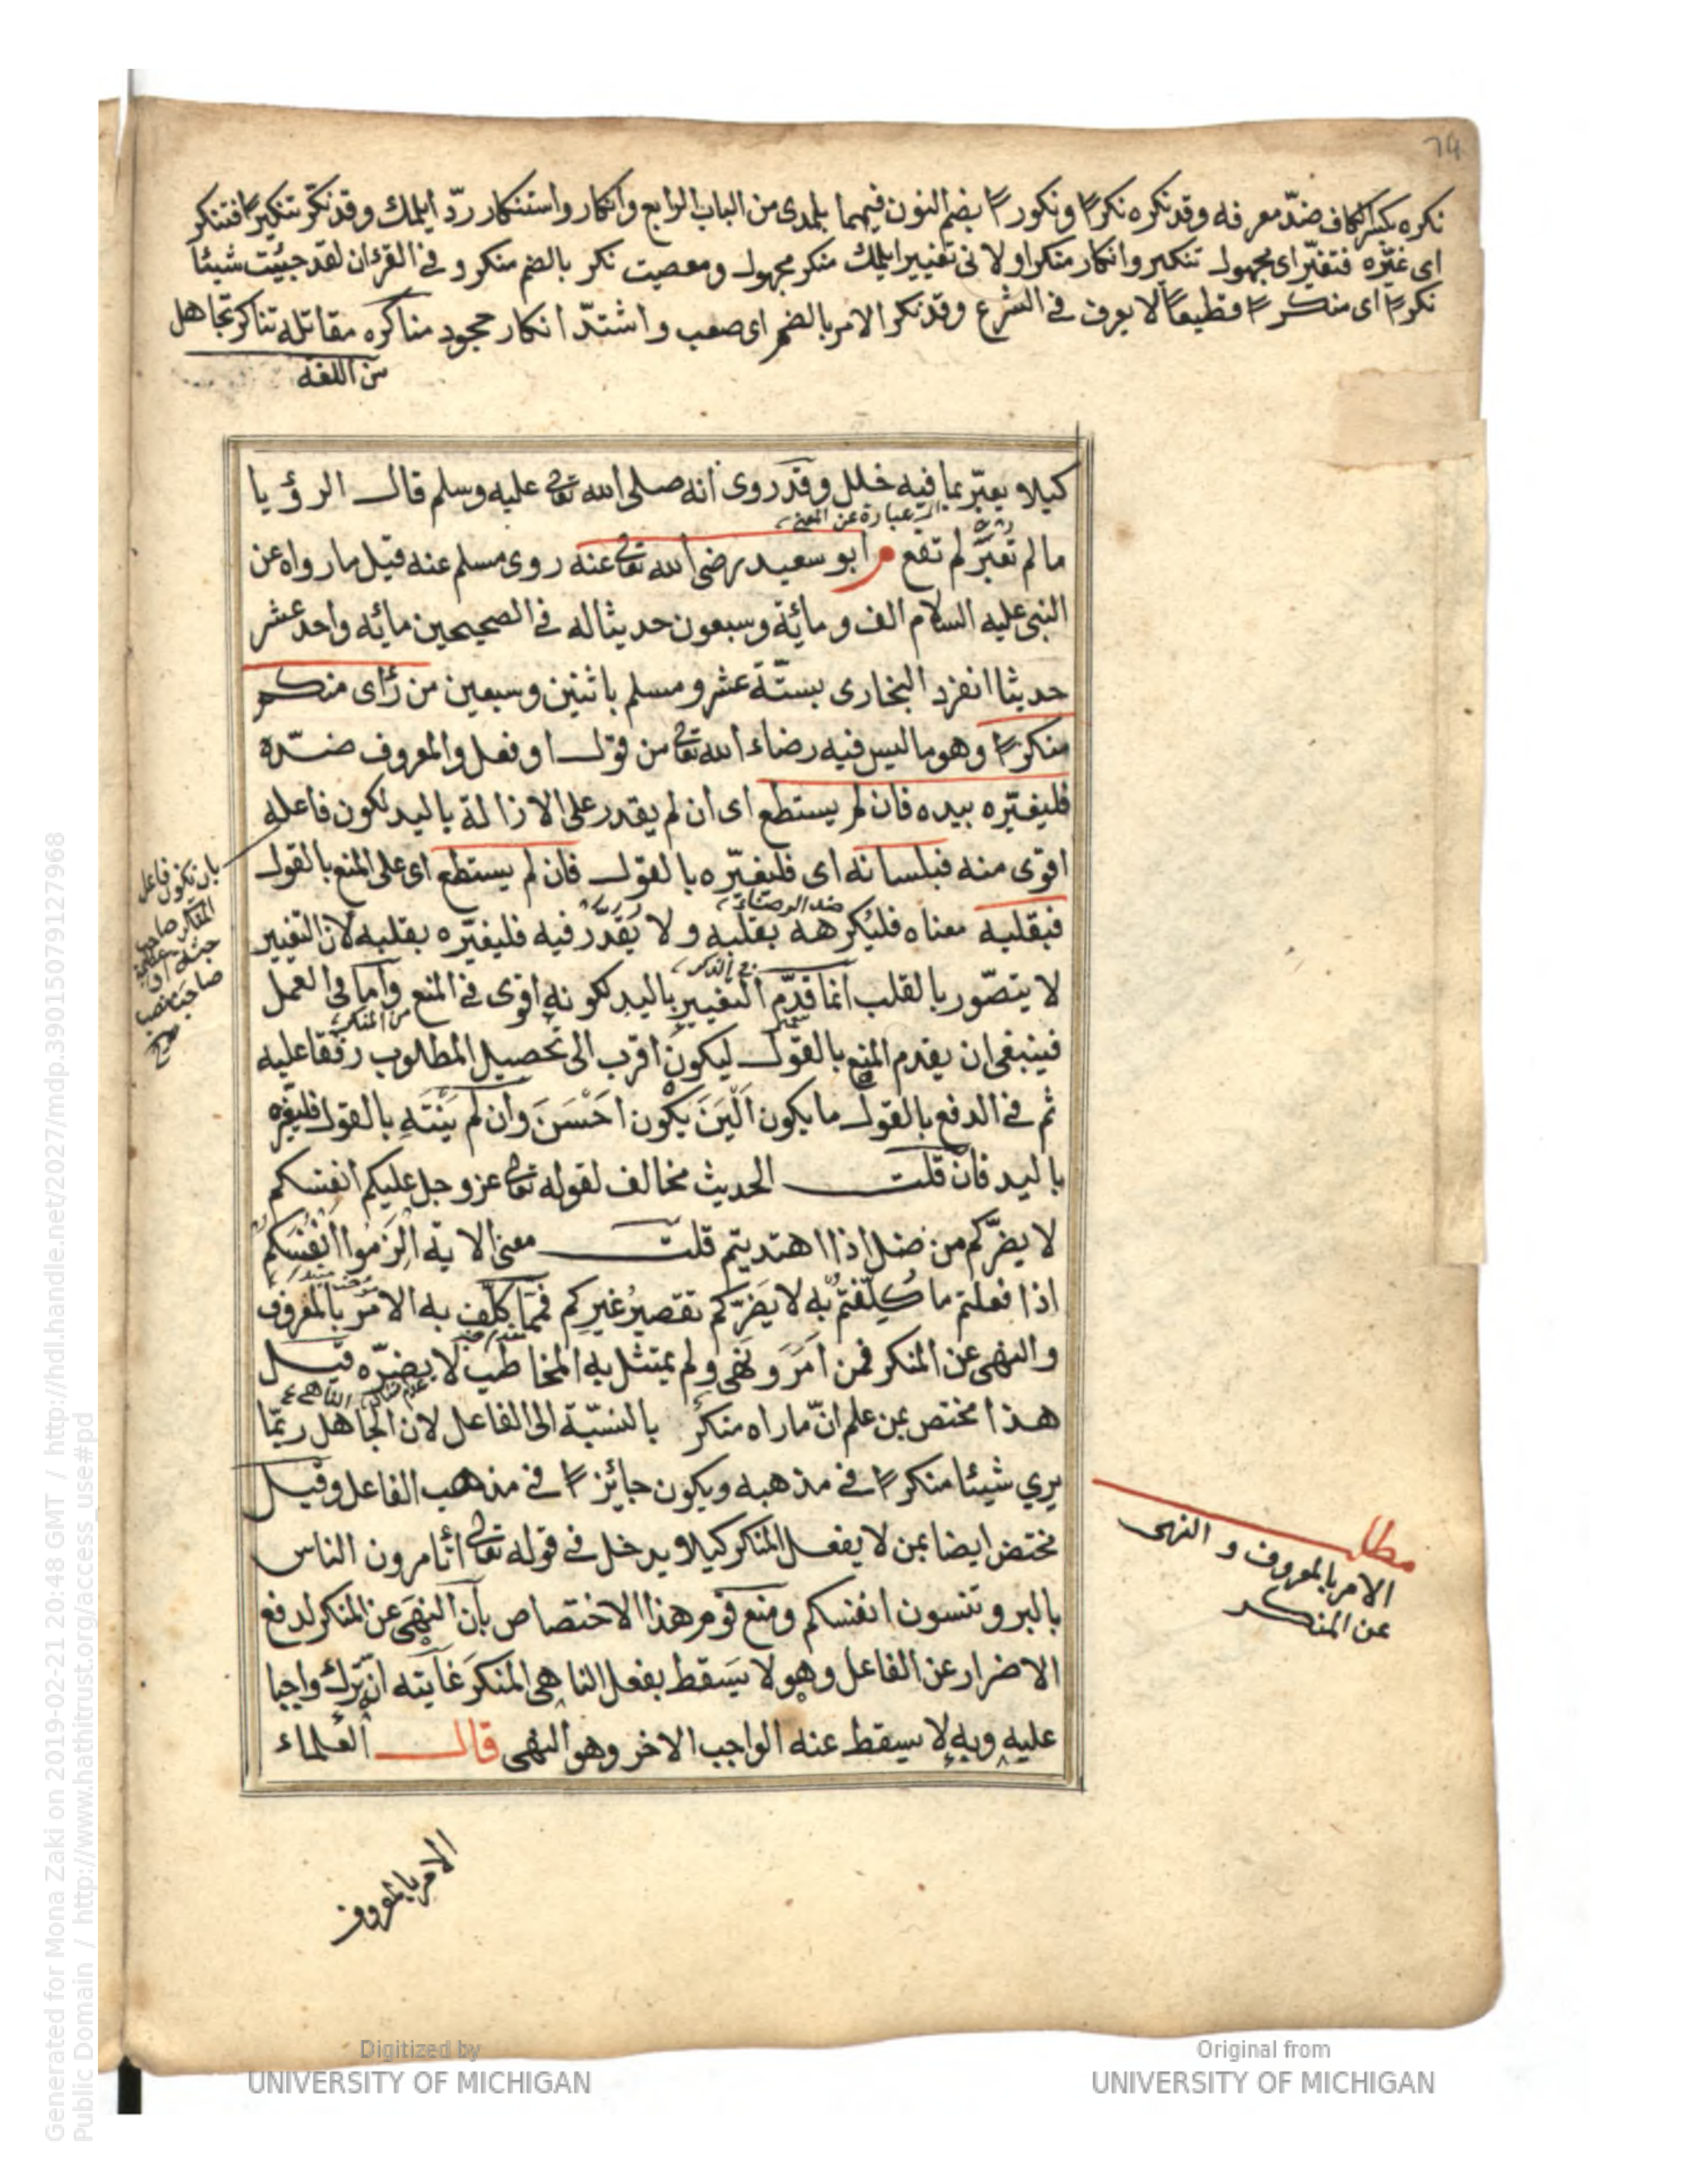 74
نكره بكسر الكاف ضدّ معرفه وقد نكره نكرًا ونكورًا بضم النون فيهما بلمدى من الباب الرابع وانكار واستنكار ردّ ايلمك وقد نكّر تنكيرًا فتنكر
اى غيّره فتغيّر اى مجهول تنكير وانكار منكر اولانى تغيير ايلمك منكر مجهول ومعصيت نكر بالضم منكر و فى القرءان لقد جئت شيئا
نكرًا اى منكرًا فظيعًا لا يعرف فى الشرع وقد نكر الامر بالضم اى صعب واشتدّ انكار جحود مناكره مقاتله تناكر تجاهل
من اللغه
كيلا و يعبّر بما فيه خلل وقد روى انه صلى الله تعالى عليه وسلم قال الرؤيا
اى عبارة عن المعنى
ما لم تُعبَّر لم تقع م ابو سعيد رضى الله تعالى عنه روى مسلم عنه قيل ما رواه عن
النبى عليه السلام الف ومائة وسبعون حديثا له فى الصحيحين مائه واحد عشر
حديثا انفرد البخارى بستّة عشر ومسلم باثنين وسبعين من رأى منكم
منكرًا وهو ما ليس فيه رضاء الله تعالى من قول او فعل والمعروف ضدّه
فليغيّره بيده فان لم يستطع اى ان لم يقدر على الازالة باليد لكون فاعله
اقوى منه فبلسانه اى فليغيّره بالقول فان لم يستطع اى على المنع بالقول
بان يكون فاعل
المنكر صاحب
صاحب منصب
صح
فبقلبه معناه فليُكرهه بقلبه ولا يُقدّر فيه فليغيّره بقلبه لان التغيير
لا يتصوّر بالقلب انما قدّم التغيير باليد لكونه اقوى فى المنع واما فى العمل
من المنكر
فينبغى ان يقدم المنع بالقول ليكون اقرب الى تحصيل المطلوب رفقا عليه
ثم فى الدفع بالقول ما يكون اَلْيَنَ يكون احْسَنَ وان لم يَنْتَهِ بالقول فليغيّره
باليد فان قلت الحديث مخالف لقوله تعالى عز وجل عليكم انفسكم
لا يضرّكم من ضل اذا اهتديتم قلت معنى الاية الزَموا انفُسَكم
اذا فعلتم ما كُلّفتم به لا يَضرّكم تقصيرُ غيرِكم فممّا كلّف به الامرُ بالمعروف
والنهى عن المنكر فمن امَرَ ونهَى ولم يمتثل به المخاطب لا يضرّه قيل
هذا مختص بمن علم انّ ما راه منكرٌ بالنسبة الى الفاعل لان الجاهل ربّما
يري شيئا منكرًا فى مذهبه ويكون جايزًا فى مذهب الفاعل وقيل
مختص ايضا بمن لا يفعل المنكر كيلا و يدخل فى قوله تعالى أتأمرون الناس
بالبر وتنسون انفسكم ومنع قوم هذا الاختصاص بأن النهىَ عن المنكر لدفع
الاضرار عن الفاعل وهو لا يَسقط بفعل الناهى المنكرَ غايته انّه ترك واجبا
عليه وبه لا يسقط عنه الواجب الاخر وهو النهى قال العلماء
مطلب
الامر بالمعروف و النهى
عن المنكر
الامر بالمعروف
Generated for Mona Zaki on 2019-02-21 20:48 GMT / http://hdl.handle.net/2027/mdp.39015079127968
Public Domain / http://www.hathitrust.org/access_use#pd
Digitized by
UNIVERSITY OF MICHIGAN
Original from
UNIVERSITY OF MICHIGAN